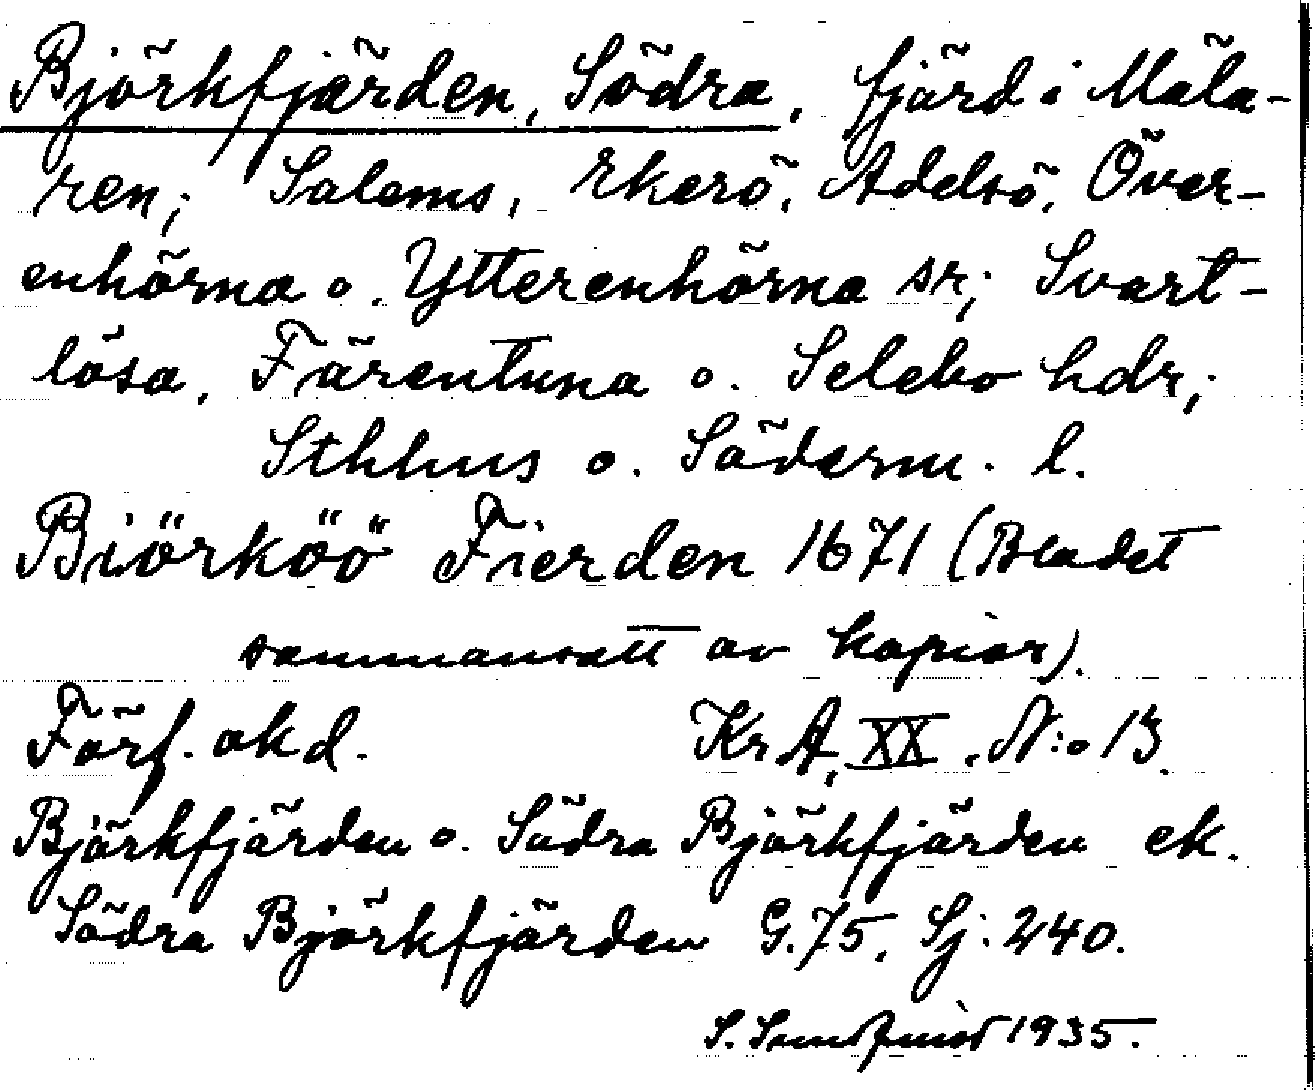 Björkfjärden, Södra, fjärd i Mäla-
ren; Salems, Ekerö, Adelsö, Över-
enhörna o. Ytterenhörna sr; Svart-
lösa, Färentuna o. Selebo hdr;
Sthlms o. Söderm. l.
Biörköö Fierden 1671 (Bladet
sammansatt av kopior).
Förf. okd. KrA, XX, N:o 13.
Björkfjärden o. Södra Björkfjärden ek.
Södra Björkfjärden G. 75, Sj: 240.
S. Sundquist 1935.